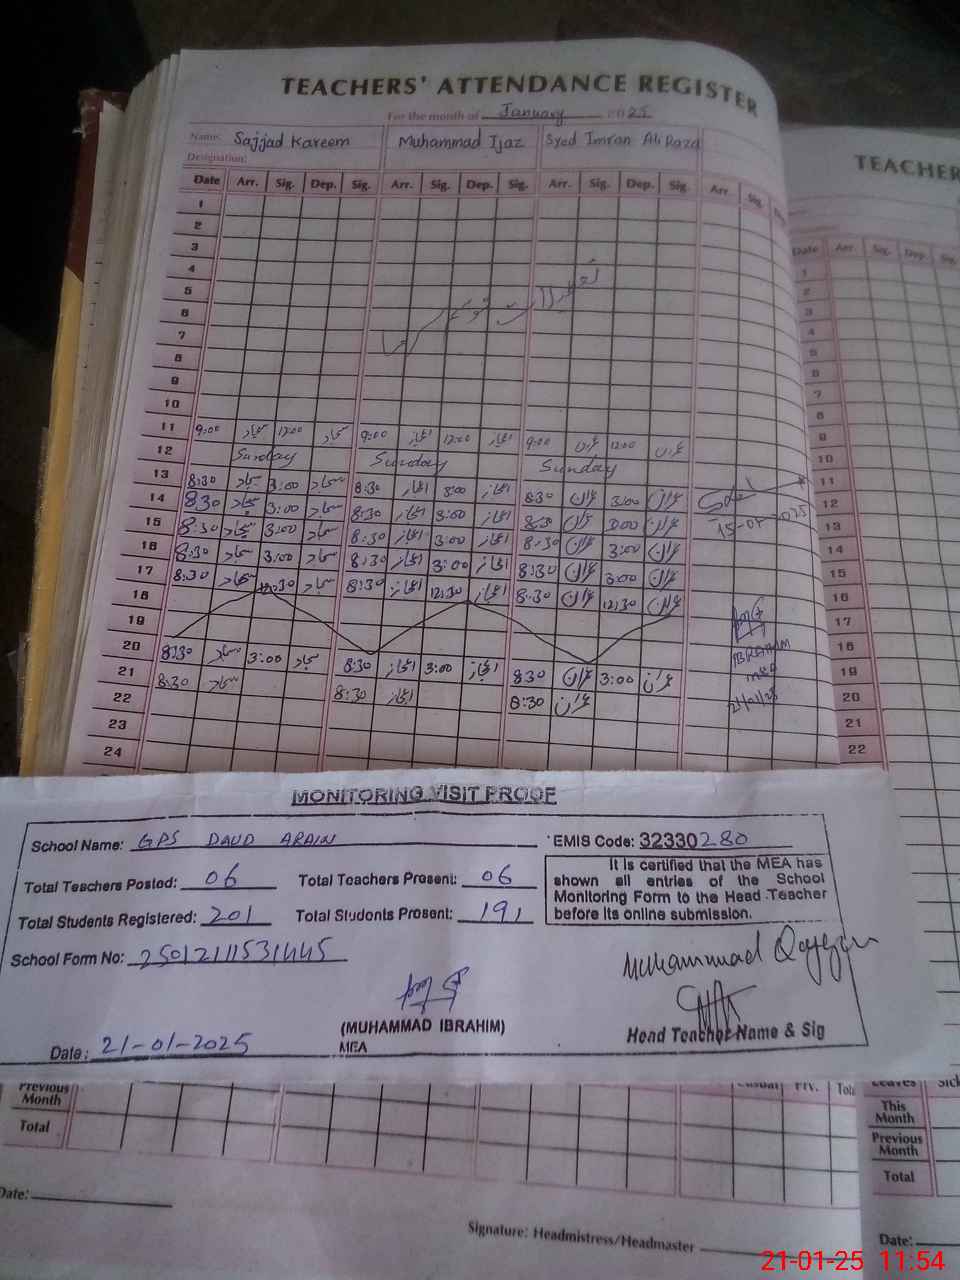 TEACHERS' ATTENDANCE REGISTER
For the month of January 2025
Name: Sajjad Kareem Muhammad Ijaz Syed Imran Ali Raza
Designation:
Date Arr. Sig. Dep. Sig. Arr. Sig. Dep. Sig. Arr. Sig. Dep. Sig. Arr. Sig.
1
2
3
4
5
6
7
8
9
10
11 9:00 سجاد 12:00 سجاد 9:00 اعجاز 12:00 اعجاز 9:00 عمران 12:00 عمران
12 Sunday Sunday Sunday
13 8:30 سجاد 3:00 سجاد 8:30 اعجاز 3:00 اعجاز 8:30 عمران 3:00 عمران
14 8:30 سجاد 3:00 سجاد 8:30 اعجاز 3:00 اعجاز 8:30 عمران 3:00 عمران
15 8:30 سجاد 3:00 سجاد 8:30 اعجاز 3:00 اعجاز 8:30 عمران 3:00 عمران
16 8:30 سجاد 3:00 سجاد 8:30 اعجاز 3:00 اعجاز 8:30 عمران 3:00 عمران
17 8:30 سجاد 12:30 سجاد 8:30 اعجاز 12:30 اعجاز 8:30 عمران 12:30 عمران
18
19
20 8:30 سجاد 3:00 سجاد 8:30 اعجاز 3:00 اعجاز 8:30 عمران 3:00 عمران
21 8:30 سجاد 8:30 اعجاز 8:30 عمران
22
23
24
IBRAHIM
MEA
21/01/25
TEACHER
Date Arr. Sig. Dep. Sig.
1
2
3
4
5
6
7
8
9
10
11
12
13
14
15
16
17
18
19
20
21
22
MONITORING VISIT PROOF
School Name: GPS DAUD ARAIN EMIS Code: 32330280
Total Teachers Posted: 06 Total Teachers Present: 06
Total Students Registered: 201 Total Students Present: 191
School Form No: 2501211531445
It is certified that the MEA has
shown all entries of the School
Monitoring Form to the Head Teacher
before its online submission.
Muhammad Qayyum
(MUHAMMAD IBRAHIM)
MEA
Head Teacher Name & Sig
Date: 21-01-2025
Previous
Month
Total
Casual Prv.
Leaves
This
Month
Previous
Month
Total
Date:
Signature: Headmistress/Headmaster
Date:
21-01-25 11:54